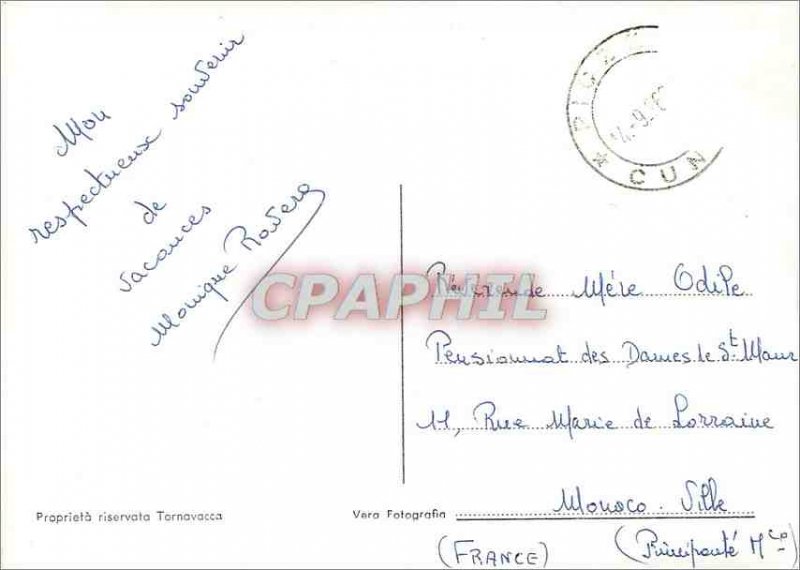 Mon
respectueux souvenir
de
vacances
Monique Rovera
CPAPHIL
* CUN
Révérende Mère Odile
Pensionnat des Dames de St Maur
11, Rue Marie de Lorraine
Monaco-Ville
(FRANCE)
(Principauté Mco)
Proprietà riservata Tornavacca
Vera Fotografia